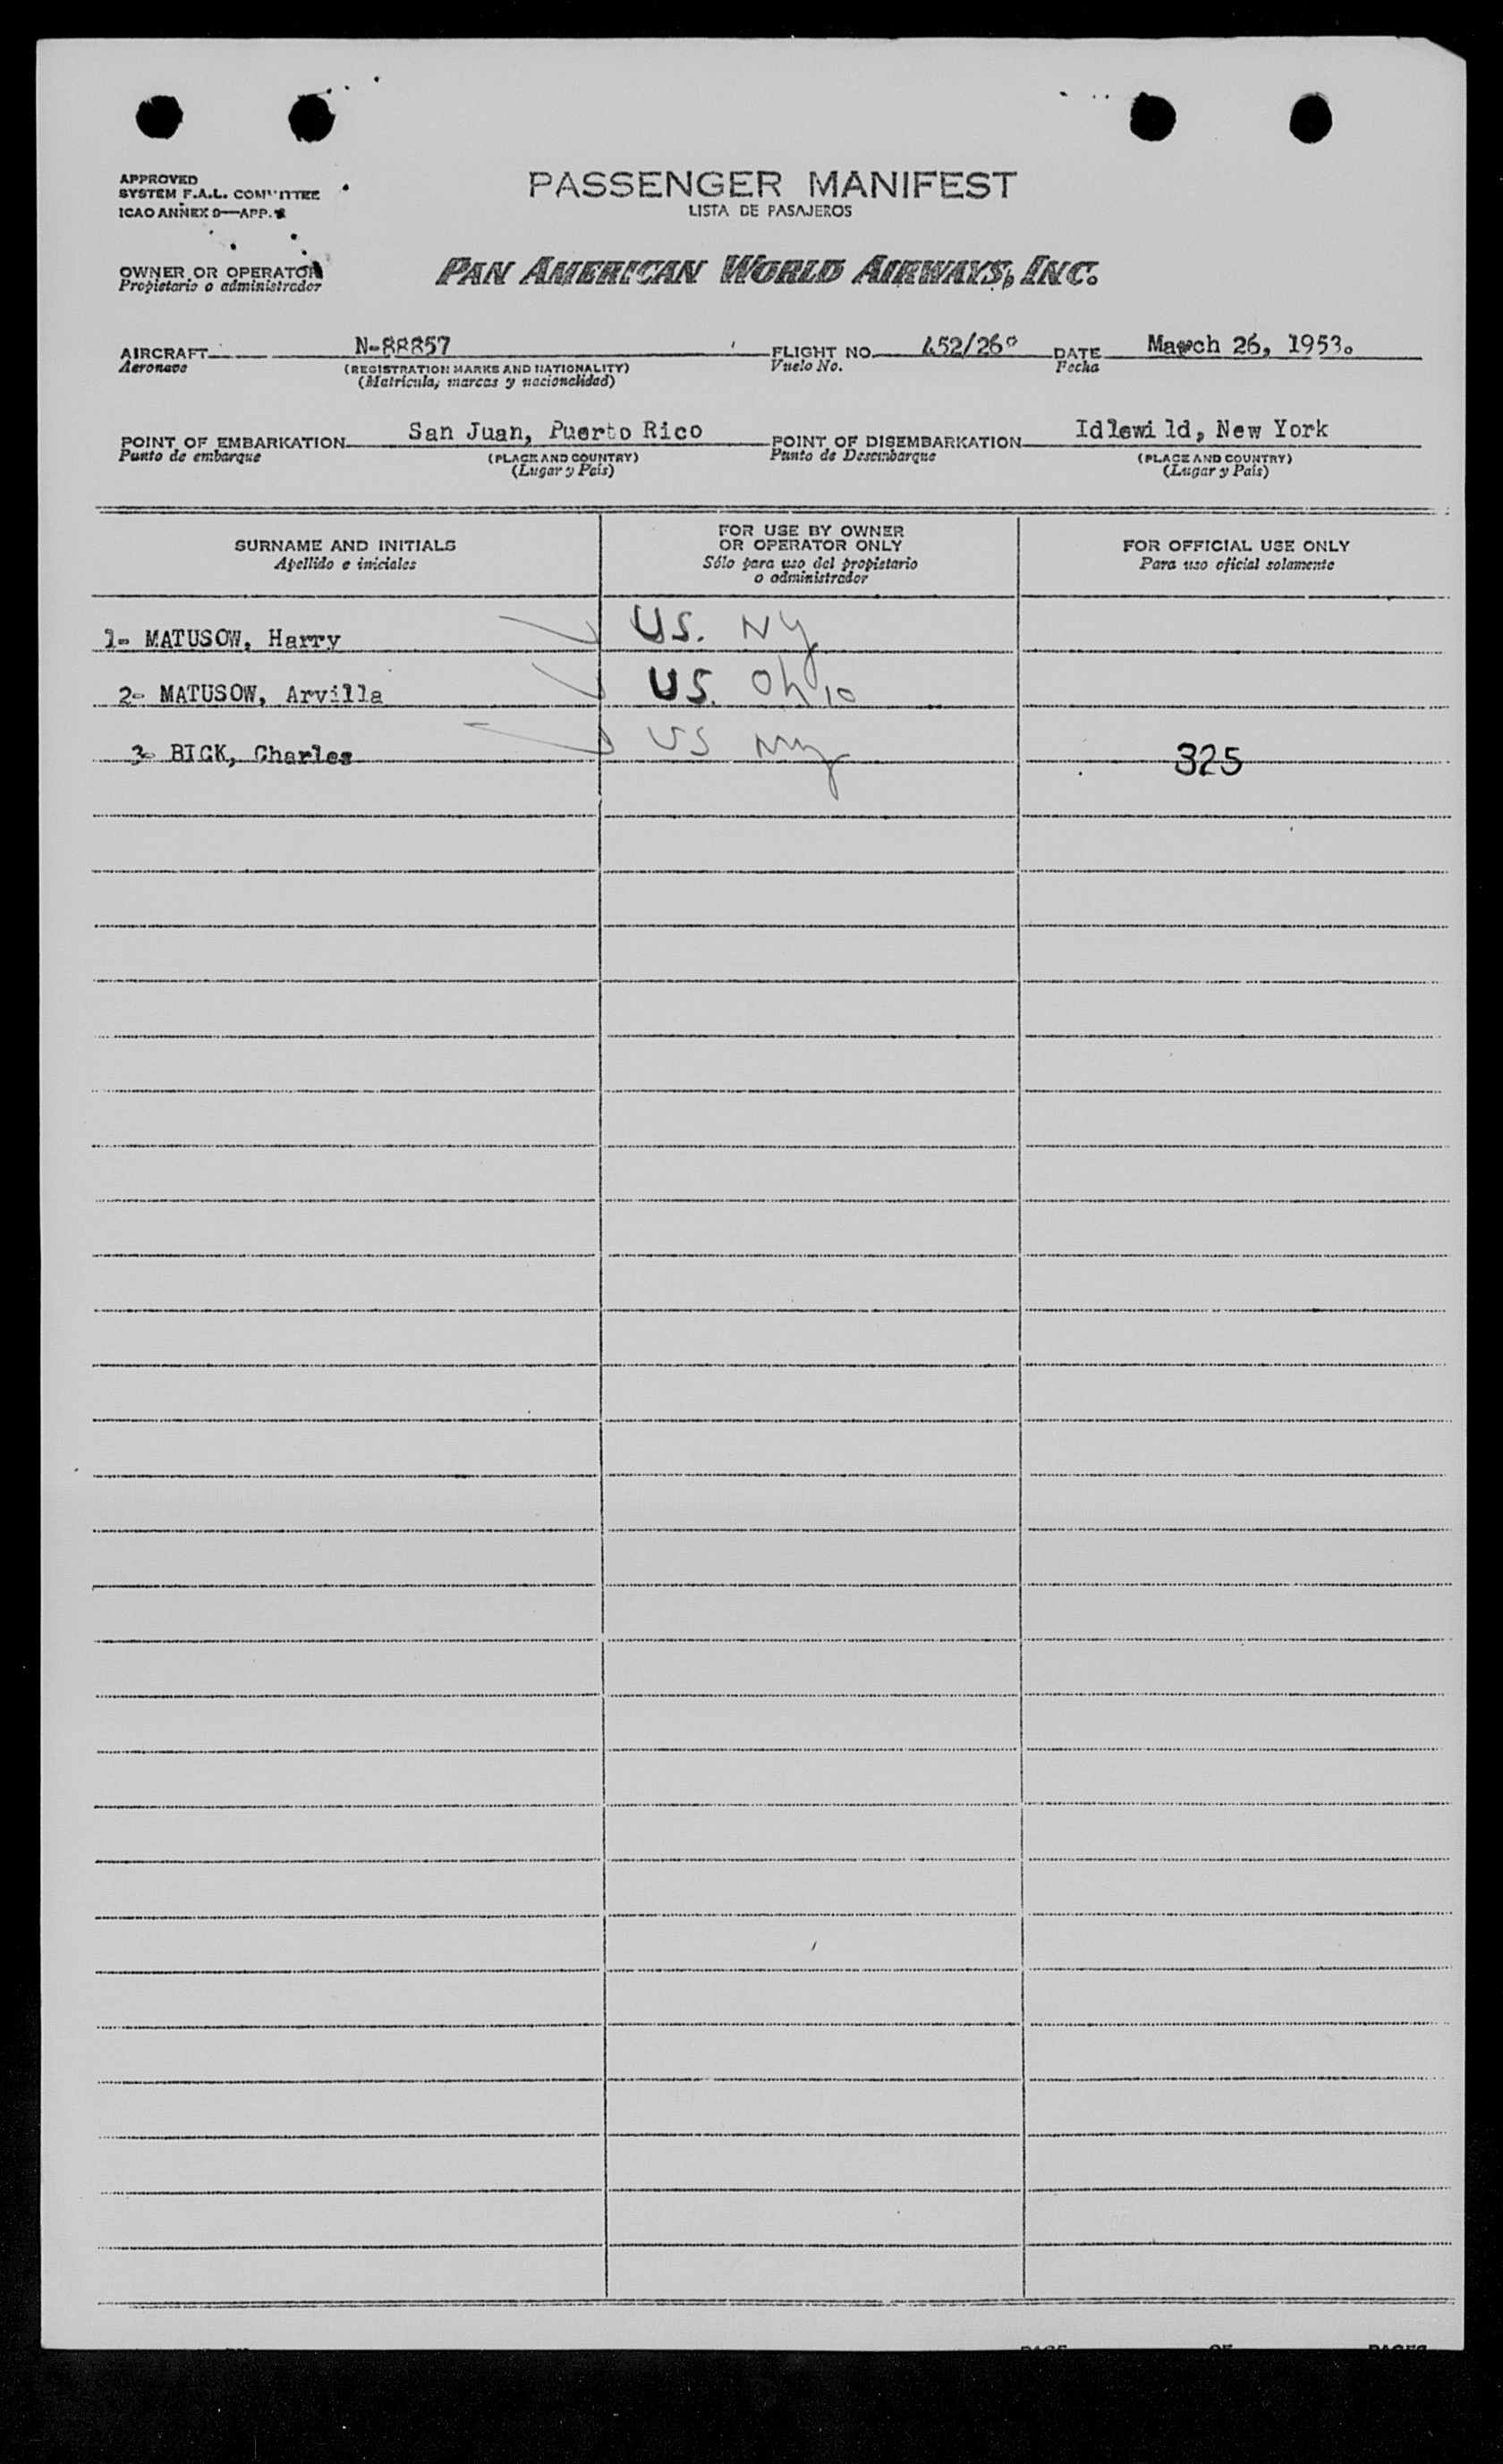 APPROVED
SYSTEM F.A.L. COMMITTEE
ICAO ANNEX 9—APP.
PASSENGER MANIFEST
LISTA DE PASAJEROS
OWNER OR OPERATOR
Propietario o administrador
PAN AMERICAN WORLD AIRWAYS, INC.
AIRCRAFT N-88857 FLIGHT NO. 452/26 DATE March 26, 1953.
Aeronave (REGISTRATION MARKS AND NATIONALITY) Vuelo No. Fecha
(Matrícula, marcas y nacionalidad)
POINT OF EMBARKATION San Juan, Puerto Rico POINT OF DISEMBARKATION Idlewi ld, New York
Punto de embarque (PLACE AND COUNTRY) Punto de Desembarque (PLACE AND COUNTRY)
(Lugar y País) (Lugar y País)
SURNAME AND INITIALS
Apellido e iniciales
FOR USE BY OWNER
OR OPERATOR ONLY
Sólo para uso del propietario
o administrador
FOR OFFICIAL USE ONLY
Para uso oficial solamente
1- MATUSOW, Harry US. NY
2- MATUSOW, Arvilla US. Ohio
3- BICK, Charles US NY 325